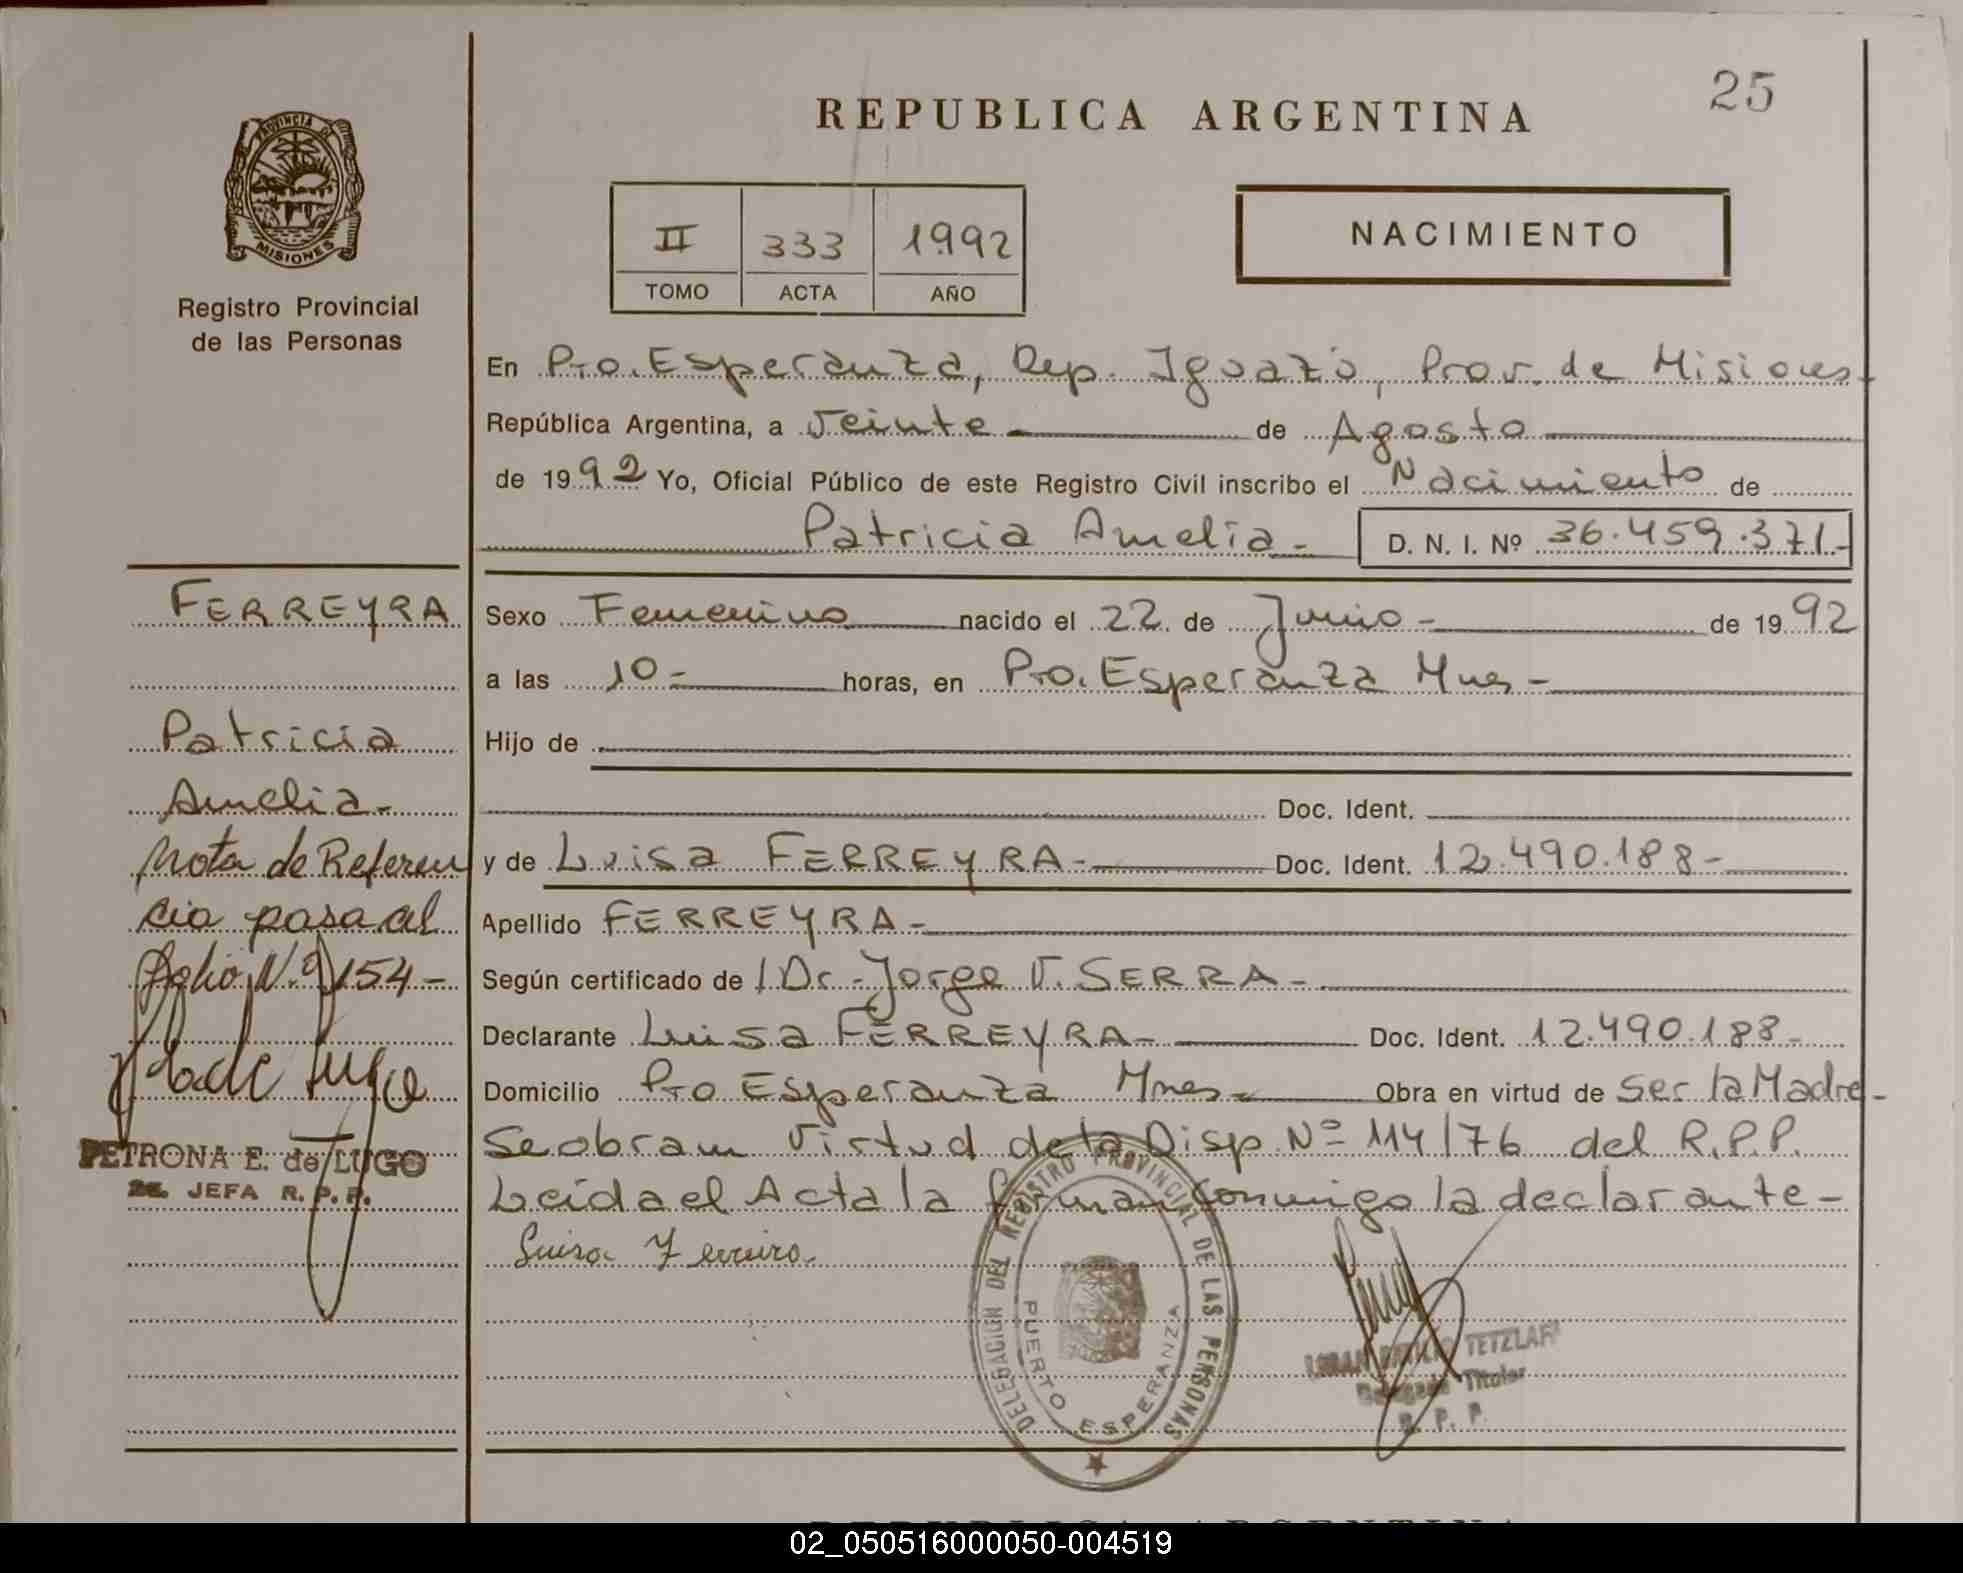 25
REPUBLICA ARGENTINA
PROVINCIA DE
MISIONES
Registro Provincial
de las Personas
II 333 1992
TOMO ACTA AÑO
NACIMIENTO
En Pto. Esperanza, Dep. Iguazú, Prov. de Misiones-
República Argentina, a Veinte - de Agosto
de 1992 Yo, Oficial Público de este Registro Civil inscribo el Nacimiento de
Patricia Amelia - D. N. I. Nº 36.459.371-
FERREYRA
Patricia
Amelia-
Nota de Referen
cia pasa al
folio N.º 154-
PETRONA E. de LUGO
JEFA R. P. P.
Sexo Femenino nacido el 22 de Junio - de 1992
a las 10- horas, en Pto. Esperanza Mnes -
Hijo de
Doc. Ident.
y de Luisa FERREYRA- Doc. Ident. 12.490.188-
Apellido FERREYRA-
Según certificado de l Dr. Jorge V. SERRA-
Declarante Luisa FERREYRA- Doc. Ident. 12.490.188-
Domicilio Pto Esperanza Mnes- Obra en virtud de Ser la Madre-
Se obra en Virtud de la Disp. Nº 114/76 del R.P.P.
Leida el Acta la firman conmigo la declarante-
Luisa Ferreira
DELEGACION DEL REGISTRO PROVINCIAL DE LAS PERSONAS
PUERTO ESPERANZA
TETZLAFF
Delegado Titular
R. P. P.
REPUBLICA ARGENTINA
02_050516000050-004519